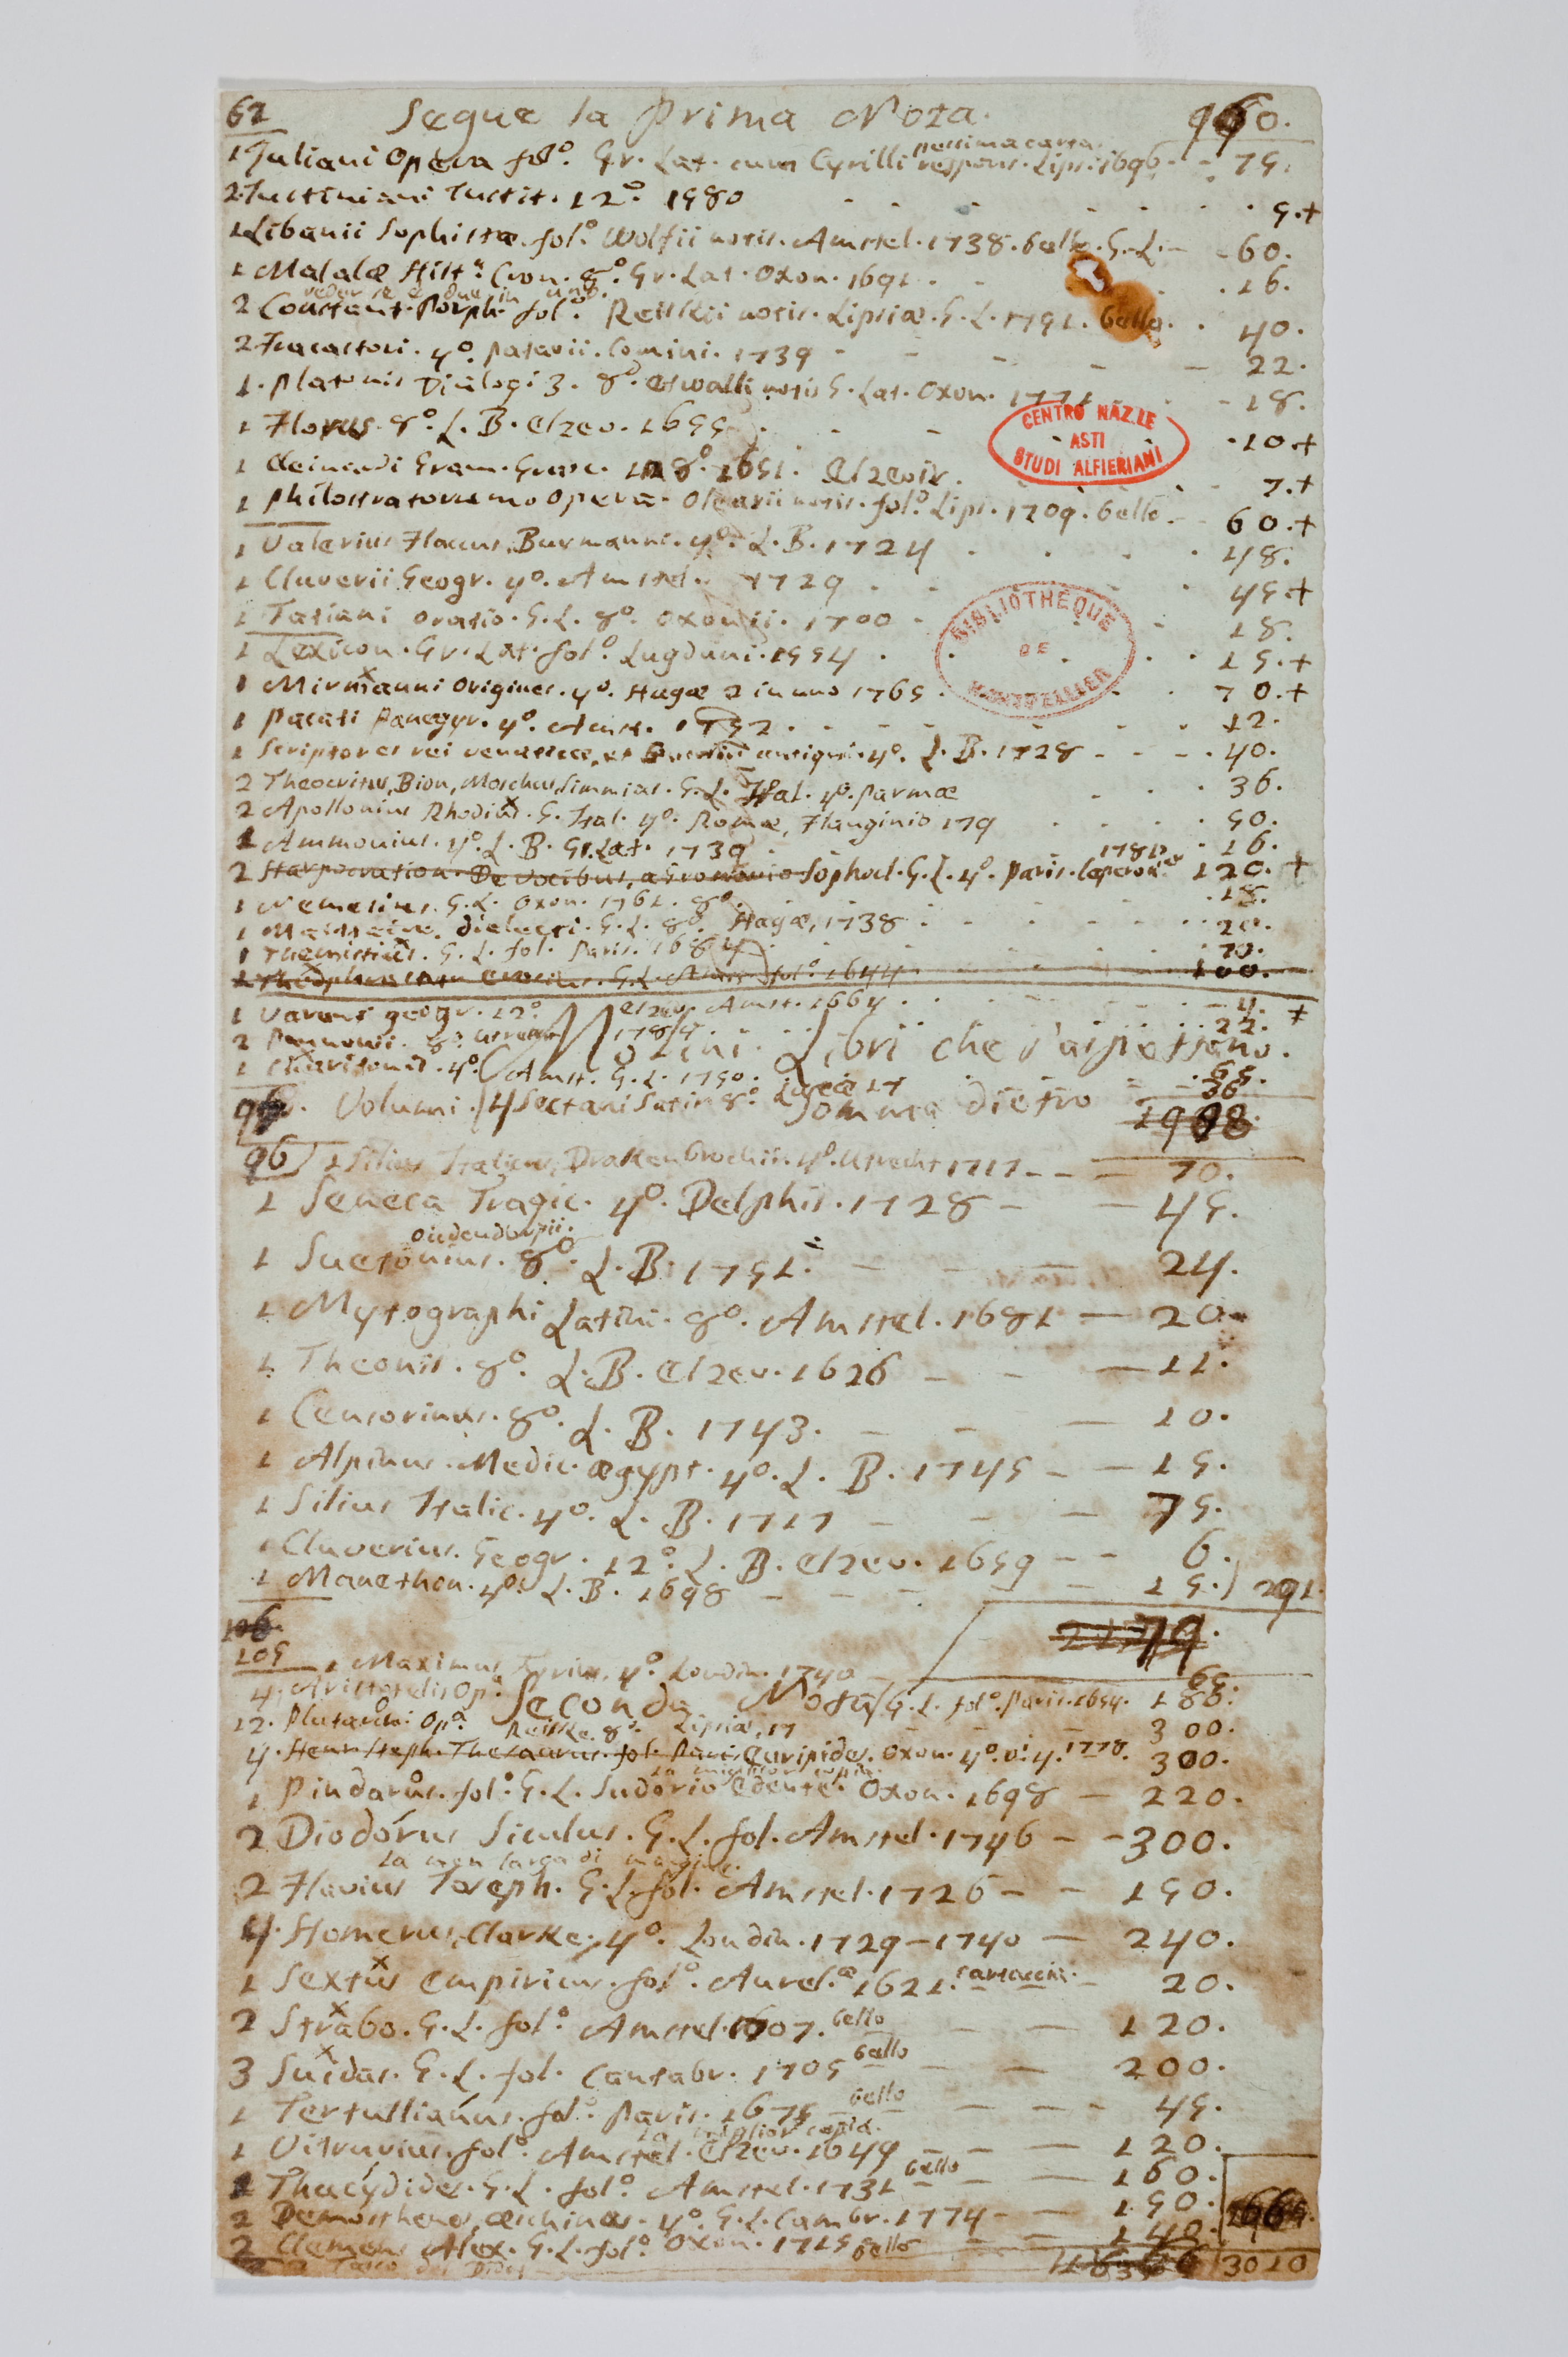 62 Segue la Prima Nota. 960.
1 Juliani Opera fol.º Gr. Lat. cum Cyrilli respons. Lips. 1696 - - 75.
pessima carta
2 Justiniani Instit. 12.º 1580 . . . 5.+
1 Libanii Sophistæ. fol.º Wolfii notis. Amstel. 1738. bello. G. L. - 60.
1 Malalæ Hist.ª Cron. 8.º Gr. Lat. Oxon. 1691 . . 16.
veder se è due in uno.
2 Constant. Porph. fol.º Reiskii notis. Lipsiæ. G. L. 1751. bello. . 40.
2 Fracastori. 4.º Patavii. Comini. 1739 - - - 22.
1. Platonis Dialogi 3. 8.º notis G. Lat. Oxon. 1771 - 18.
1 Florus. 8.º L. B. Elzev. 1655 . - - . 10.+
1 Gram. Græc. 8.º 1651. Elzevir. . 7.+
1 Opera. Olearii notis. fol.º Lips. 1709. bello. - 60.+
1 Valerius Flaccus, Burmanni. 4.º L. B. 1724 . . . 48.
1 Cluverii Geogr. 4.º Amstel. 1729 . . 45.+
1 Tatiani Oratio. G. L. 8.º Oxonii. 1700 . - 18.
1 Lexicon. Gr. Lat. fol.º Lugduni. 1554 . . . 15.+
1 Mirmanni Origines. 4.º Hagæ 2 in uno 1765 . . 70.+
1 Pacati Panegyr. 4.º Amst. 1752 . - - 12.
1 Scriptores rei venaticæ, et antiqui. 4.º L. B. 1728 - - - 40.
2 Theocritus, Bion, Moschus, Simmias. G. L. Ital. 4.º Parmæ . . 36.
2 Apollonius Rhodius. G. Ital. 4.º Romæ, Flanginio 179 . . . 50.
1 Ammonius. 4.º L. B. Gr. Lat. 1739 . . 16.
2 Harpocration. De vocibus, Sophocl. G. L. 4.º Paris. 1781 120.+
1 Nemesius. G. L. Oxon. 1761. 8.º . . 18.
1 G. L. 8.º Hagæ, 1738 . . . 20.
1 Themistius. G. L. fol. Paris. 1684 . . 70.
G. L. fol.º 1644 100.
1 geogr. 12.º Elzev. Amst. 1664 . . - 4. +
2 8.º 22.
Libri che s'aspettano.
1 Charitonis. 4.º Amst. G. L. 1750. 65.
Volumi. 4 Sectani Satir. 8.º Lucæ 17 36
Somma dietro
96 1 Silius Italicus, Drakenborchii. 4.º Utrecht 1717 - - - 70.
1 Seneca Tragic. 4.º Delphis. 1728 - - 45.
oudendorpii.
1 Suetonius. 8.º L. B. 1751. - - 24.
1 Mytographi Latini. 8.º Amstel. 1681 - 20.
1 Theonis. 8.º L. B. Elzev. 1626 - - - 11.
1 Censorinus. 8.º L. B. 1743. - - - 10.
1 Alpinus. Medic. ægypt. 4.º L. B. 1745 - - 15.
1 Silius Italic. 4.º L. B. 1717 - - - 75.
1 Cluverius. Geogr. 12.º L. B. Elzev. 1659 - - 6.
1 Manethon. 4.º L. B. 1698 - - - 15. 291.
106
105
1 Maximus Tyrius. 4.º Londin. 1740 - 65.
4. Aristotelis Op.ª G. L. fol.º Paris. 1654. 180.
Seconda Nota
12. Plutarchi Op.ª Reiske. 8.º Lipsiæ, 17 - - - 300.
4. Henr. Steph. Thesaurus. fol. Paris. Euripides. Oxon. 4.º v.i 4. 1778. 300.
la miglior copia.
1 Pindarus. fol.º G. L. Sudorio Oxon. 1698 - 220.
2 Diodorus Siculus. G. L. fol. Amstel. 1746 - - 300.
la men larga di margine.
2 Flavius Joseph. G. L. fol. Amstel. 1726 - - 150.
4. Homerus, Clarke, 4.º Londin. 1729-1740 - 240.
1 Sextus Empiricus. fol.º Aurel.æ 1621. cartaccia. - 20.
2 Strabo. G. L. fol.º Amstel. 1707. bello - - 120.
3 Suidas. G. L. fol. Cantabr. 1705 bello - - 200.
1 Tertullianus. fol.º Paris. 1675 bello - - - 45.
la miglior copia.
1 Vitruvius. fol.º Amstel. Elzev. 1649 - - - 120.
1 Thucydides. G. L. fol.º Amstel. 1731 bello - - 160.
2 Demosthenes, æschines. 4.º G. L. Cambr. 1774 - - 150.
2 Clemens Alex. G. L. fol.º Oxon. 1715 bello - - 140.
3010
CENTRO NAZ.LE
ASTI
STUDI ALFIERIANI
BIBLIOTHÈQUE
DE
MONTPELLIER